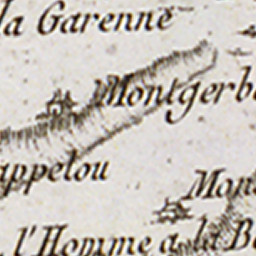 la Garenne
Montgerb
appelou
Mon
l'Homme a la Ba